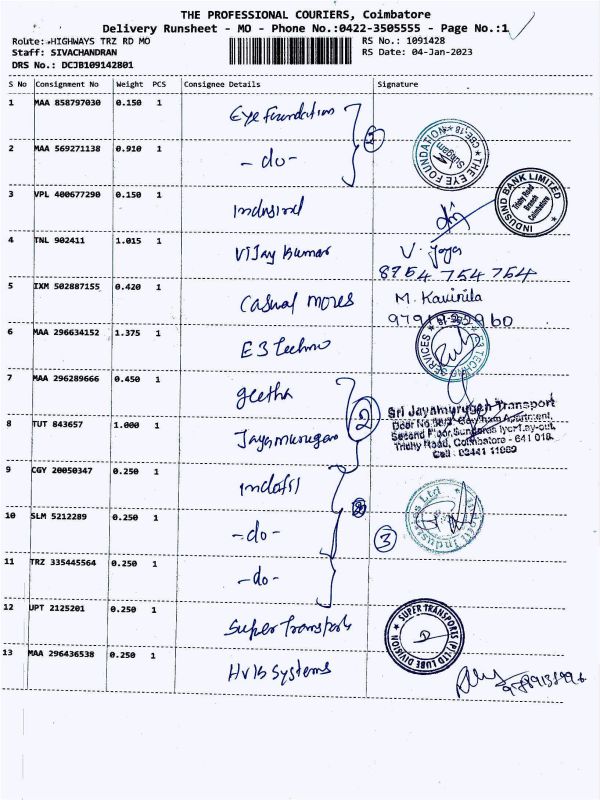 THE PROFESSIONAL COURIERS, Coimbatore
Delivery Runsheet - MO - Phone No.:0422-3505555 - Page No.:1
Route: HIGHWAYS TRZ RD MO RS No.: 1091428
Staff: SIVACHANDRAN RS Date: 04-Jan-2023
DRS No.: DCJB109142801
S No Consignment No Weight PCS Consignee Details Signature
1 MAA 858797030 0.150 1 Eye Foundation
2 MAA 569271138 0.910 1 -do- 2
THE EYE FOUNDATION CBE-18
3 VPL 400677290 0.150 1 Indusind
INDUSIND BANK LIMITED Trichy Road Branch Coimbatore
4 TNL 902411 1.015 1 Vijay Kumar V. Jaya
8754 754 754
5 IXM 502887155 0.420 1 Casual mores M. Kavinila
6 MAA 296634152 1.375 1 E3 Techno
7 MAA 296289666 0.450 1 geetha
8 TUT 843657 1.000 1 Jayamurugan 2
Sri Jayamurugan Transport
Second Floor,
Trichy Road, Coimbatore - 641 018.
9 CGY 20050347 0.250 1 Indofil
10 SLM 5212289 0.250 1 -do- 3
11 TRZ 335445564 0.250 1 -do-
12 UPT 2125201 0.250 1 Super Transports
SUPER TRANSPORTS (P) LTD LUBE DIVISION
13 MAA 296436538 0.250 1 HVB Systems